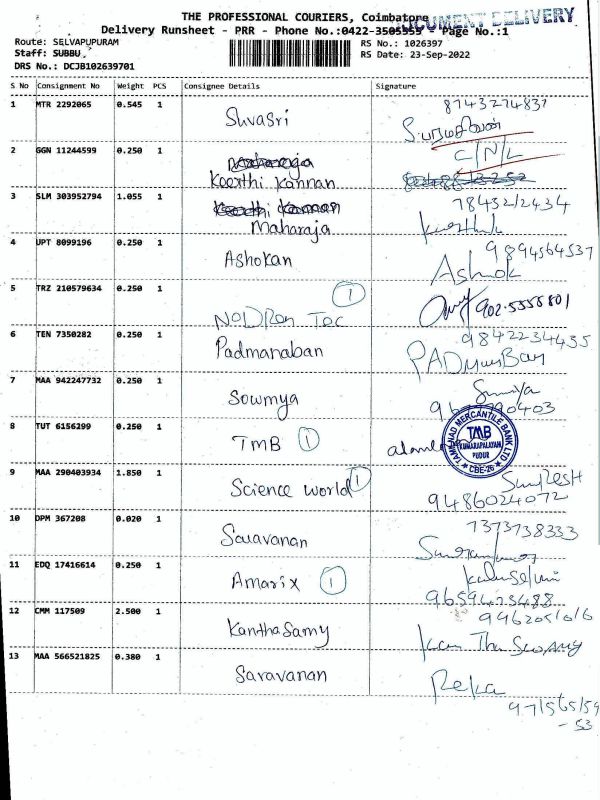 THE PROFESSIONAL COURIERS, Coimbatore
DOCUMENT DELIVERY
Delivery Runsheet - PRR - Phone No.:0422-3505555 - Page No.:1
Route: SELVAPUPURAM RS No.: 1026397
Staff: SUBBU, RS Date: 23-Sep-2022
DRS No.: DCJB102639701
S No Consignment No Weight PCS Consignee Details Signature
1 MTR 2292065 0.545 1 Shvasri 8743274837
2 GGN 11244599 0.250 1 Keerthi Kannan C/N/L
3 SLM 303952794 1.055 1 Maharaja 7845212434
4 UPT 8099196 0.250 1 Ashokan 9894564537
Ashok
5 TRZ 210579634 0.250 1 ①
6 TEN 7350282 0.250 1 Padmanaban 9842234435
7 MAA 942247732 0.250 1 Sowmya
8 TUT 6156299 0.250 1 TMB ①
TAMILNAD MERCANTILE BANK LTD
TMB
KUMARAPALAYAM
PUDUR
CBE-26
9 MAA 290403934 1.850 1 Science world ① Suresh
9486024072
10 DPM 367208 0.020 1 Saravanan 7373738333
11 EDQ 17416614 0.250 1 Amarix ① Kalaiselvi
9659473488
12 CMM 117509 2.500 1 KanthaSamy 9962051016
13 MAA 566521825 0.380 1 Saravanan Reka
971565159
- 53